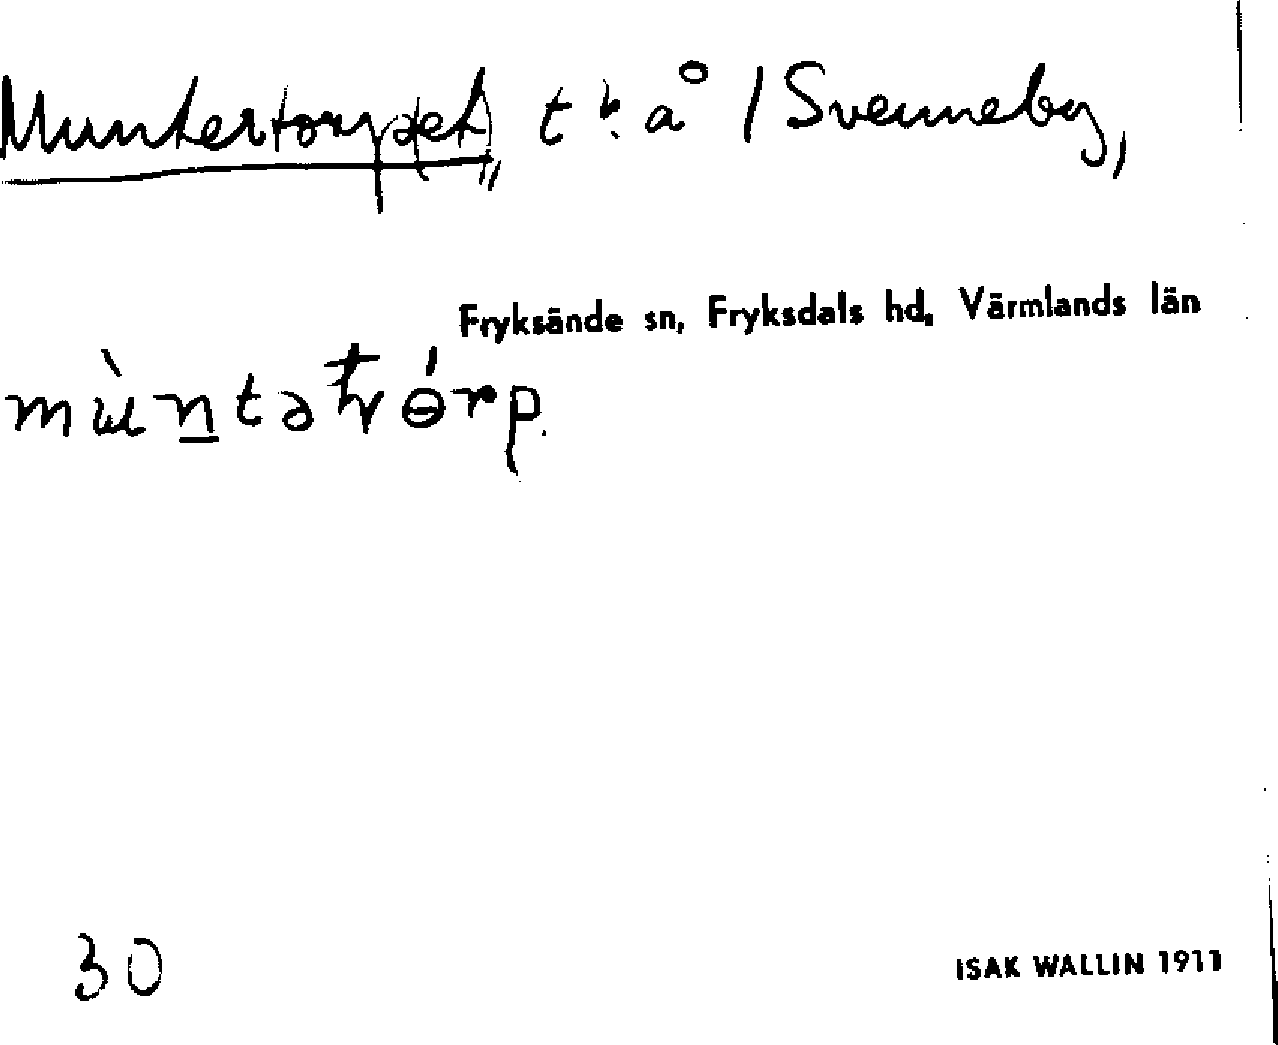 Muntertorp(et), t r. å / Svenneby,
Fryksände sn, Fryksdals hd, Värmlands län
30
ISAK WALLIN 1911